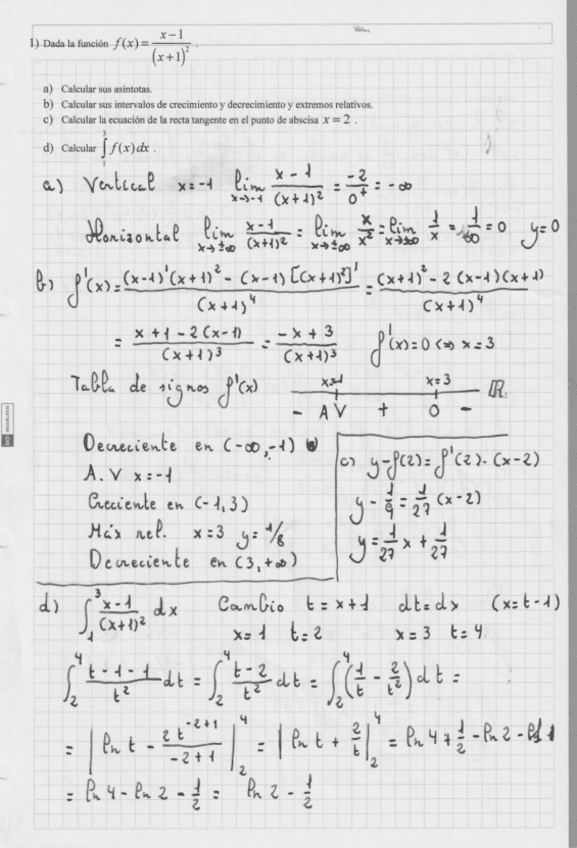 1) Dada la función f(x) = (x-1)/(x+1)².
a) Calcular sus asíntotas.
b) Calcular sus intervalos de crecimiento y decrecimiento y extremos relativos.
c) Calcular la ecuación de la recta tangente en el punto de abscisa x = 2.
d) Calcular ∫₁³ f(x)dx.
a) Vertical x=-1 lim x→-1 (x-1)/(x+1)² = -2/0⁺ = -∞
Horizontal lim x→±∞ (x-1)/(x+1)² = lim x→±∞ x/x² = lim x→±∞ 1/x = 1/∞ = 0 y=0
b) f'(x) = ((x-1)'(x+1)² - (x-1)[(x+1)²]')/(x+1)⁴ = ((x+1)² - 2(x-1)(x+1))/(x+1)⁴
= (x+1-2(x-1))/(x+1)³ = (-x+3)/(x+1)³ f'(x)=0 ⇔ x=3
Tabla de signos f'(x) x=-1 x=3 ℝ
- AV + 0 -
Decreciente en (-∞,-1)
A.V x=-1
Creciente en (-1,3)
Máx rel. x=3 y=1/8
Decreciente en (3,+∞)
c) y-f(2) = f'(2)·(x-2)
y - 1/9 = 1/27 (x-2)
y = 1/27 x + 1/27
d) ∫₁³ (x-1)/(x+1)² dx Cambio t=x+1 dt=dx (x=t-1)
x=1 t=2 x=3 t=4
∫₂⁴ (t-1-1)/t² dt = ∫₂⁴ (t-2)/t² dt = ∫₂⁴ (1/t - 2/t²) dt =
= | ln t - 2t⁻²⁺¹/(-2+1) |₂⁴ = | ln t + 2/t |₂⁴ = ln 4 + 1/2 - ln 2 - 1
= ln 4 - ln 2 - 1/2 = ln 2 - 1/2